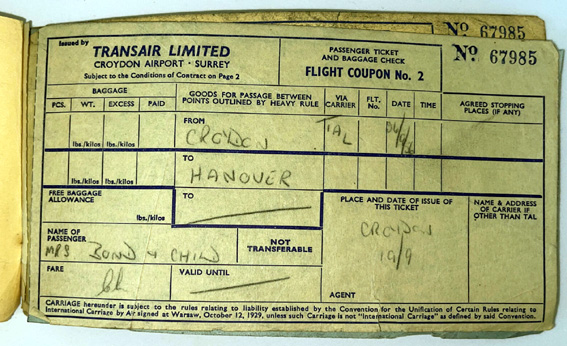 Nº 67985
Nº 67985
Issued by
TRANSAIR LIMITED
CROYDON AIRPORT · SURREY
Subject to the Conditions of Contract on Page 2
PASSENGER TICKET
AND BAGGAGE CHECK
FLIGHT COUPON No. 2
BAGGAGE
PCS. WT. EXCESS PAID
GOODS FOR PASSAGE BETWEEN
POINTS OUTLINED BY HEAVY RULE
VIA
CARRIER
FLT.
No.
DATE
TIME
AGREED STOPPING
PLACES (IF ANY)
lbs./kilos lbs./kilos
FROM
CROYDON
TAL
lbs./kilos lbs./kilos
TO
HANOVER
FREE BAGGAGE
ALLOWANCE
lbs./kilos
TO
PLACE AND DATE OF ISSUE OF
THIS TICKET
CROYDON
19/9
AGENT
NAME & ADDRESS
OF CARRIER IF
OTHER THAN TAL
NAME OF
PASSENGER
MRS BOND & CHILD
NOT
TRANSFERABLE
FARE
VALID UNTIL
CARRIAGE hereunder is subject to the rules relating to liability established by the Convention for the Unification of Certain Rules relating to
International Carriage by Air signed at Warsaw, October 12, 1929, unless such Carriage is not "International Carriage" as defined by said Convention.